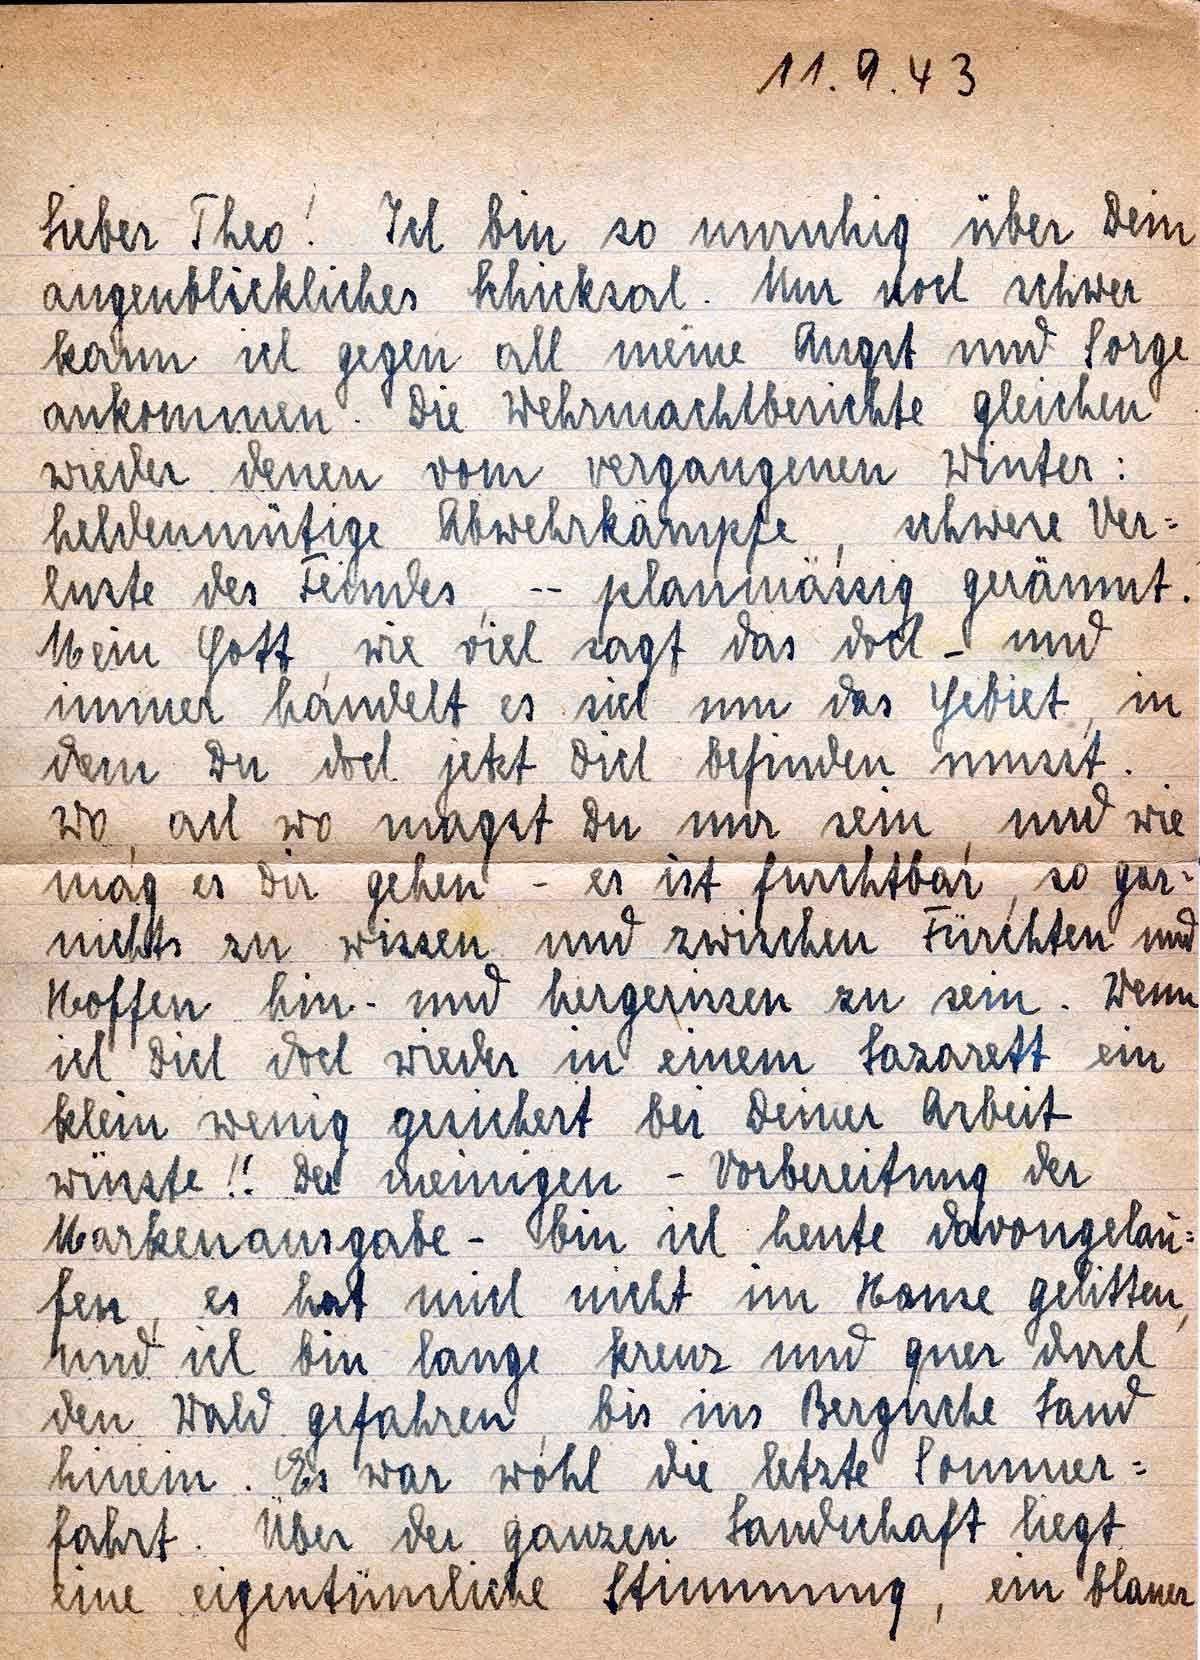 11.9.43
Lieber Theo! Ich bin so unruhig über Dein
augenblickliches Schicksal. Nur noch schwer
kann ich gegen all meine Angst und Sorge
ankommen. Die Wehrmachtberichte gleichen
wieder denen vom vergangenen Winter:
heldenmütige Abwehrkämpfe, schwere Ver=
luste des Feindes, -- planmässig geräumt.
Mein Gott, wie viel sagt das doch - und
immer handelt es sich um das Gebiet, in
dem Du doch jetzt Dich befinden musst.
Wo, ach wo magst Du nur sein, und wie
mag es Dir gehen - es ist furchtbar, so gar=
nichts zu wissen und zwischen Fürchten und
Hoffen hin- und hergerissen zu sein. Wenn
ich Dich doch wieder in einem Lazarett ein
klein wenig gesichert bei Deiner Arbeit
wüsste!! Der meinigen - Vorbereitung der
Markenausgabe - bin ich heute davongelau=
fen, es hat mich nicht im Hause gelitten,
und ich bin lange kreuz und quer durch
den Wald gefahren, bis ins Bergische Land
hinein. Es war wohl die letzte Sommer=
fahrt. Über der ganzen Landschaft liegt
eine eigentümliche Stimmung, ein blauer